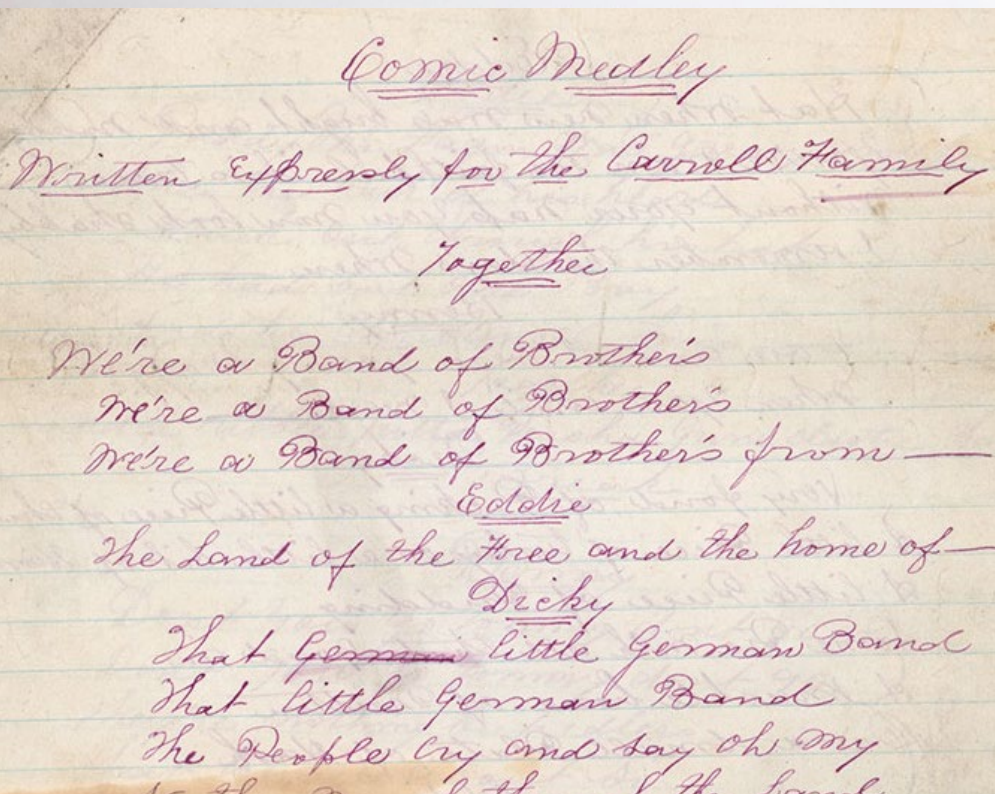 Comic Medley
Written Expresly for the Carroll Family
Together
We're a Band of Brother's
We're a Band of Brother's
We're a Band of Brother's from —
Eddie
The Land of the Free and the home of —
Dicky
That German little German Band
That little German Band
The People Cry and Say Oh My